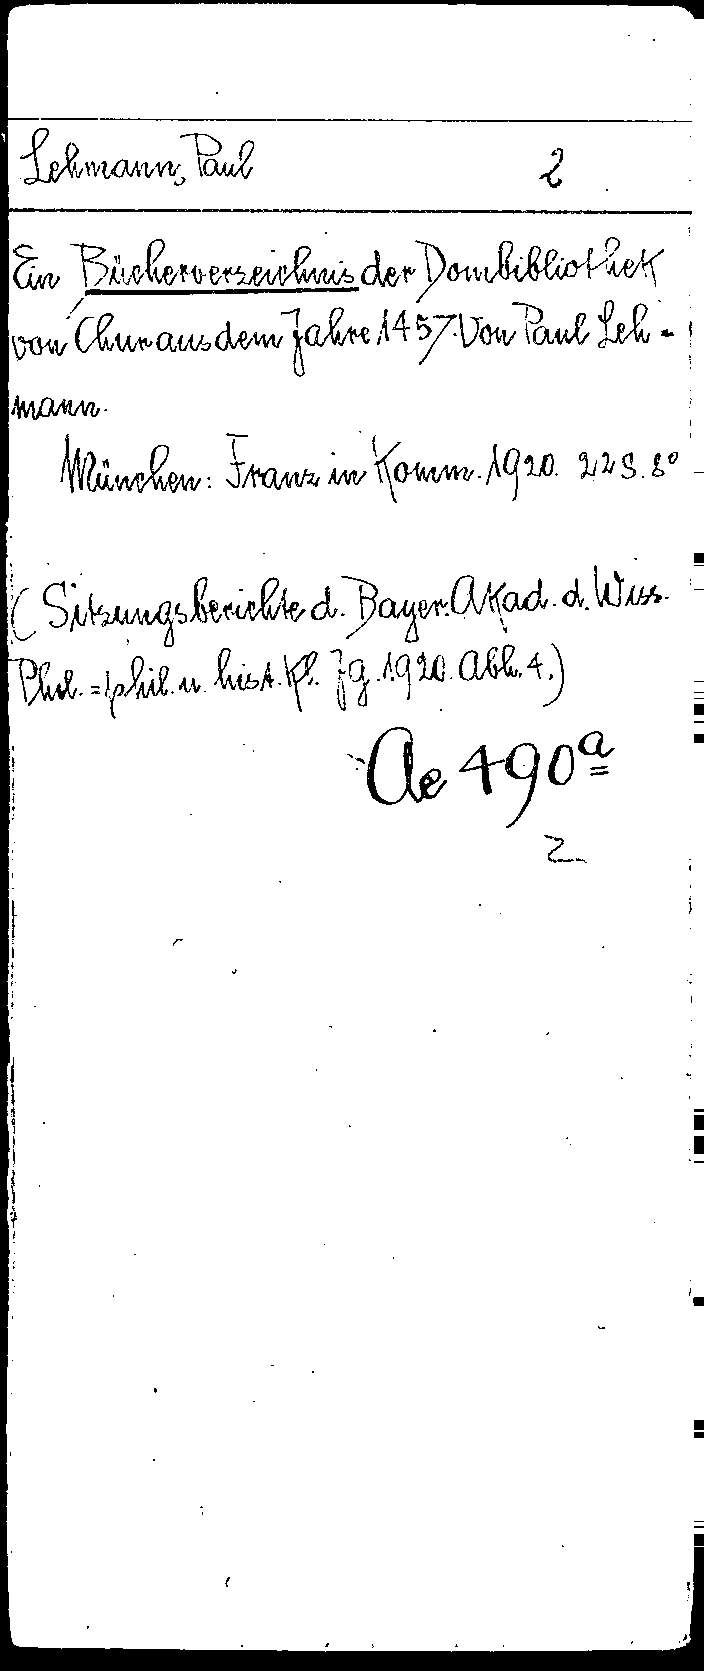 Lehmann, Paul 2
Ein Bücherverzeichnis der Dombibliothek
von Chur aus dem Jahre 1457. Von Paul Leh-
mann.
München: Franz in Komm. 1920. 22 S. 8°
(Sitzungsberichte d. Bayer. Akad. d. Wiss.
Phil.=phil. u. hist. Kl. Jg. 1920. Abh. 4.)
Ae 490a
2